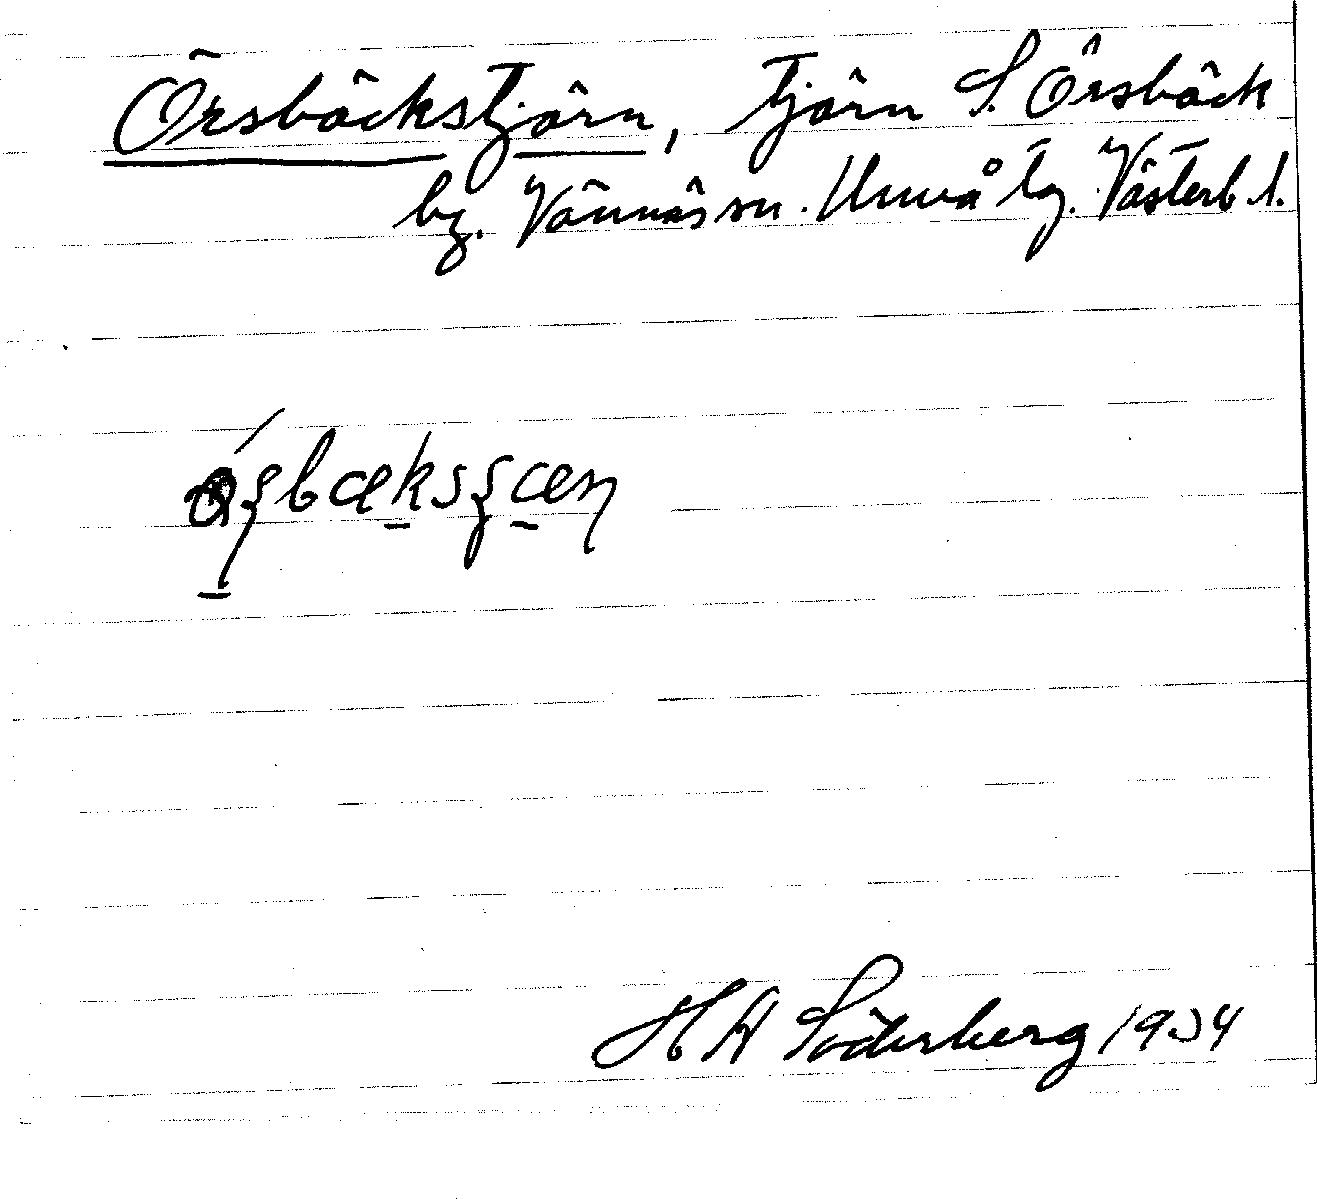 Örsbäckstjärn, tjärn S. Örsbäck
by. Vännäs sn. Umeå tg. Västerb. l.
H A Söderberg 1934